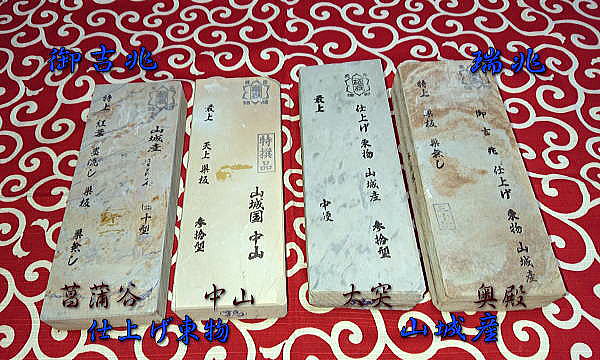 御吉兆
瑞兆
特上 巣板 巣無し
山城産
十型
最上
天上 巣板
特撰品
山城国 中山
参拾型
最上
仕上げ 東物 山城産
参拾型
特上 巣板 巣無し
御吉兆 仕上げ 東物 山城産
菖蒲谷
中山
大突
奥殿
仕上げ東物
山城産